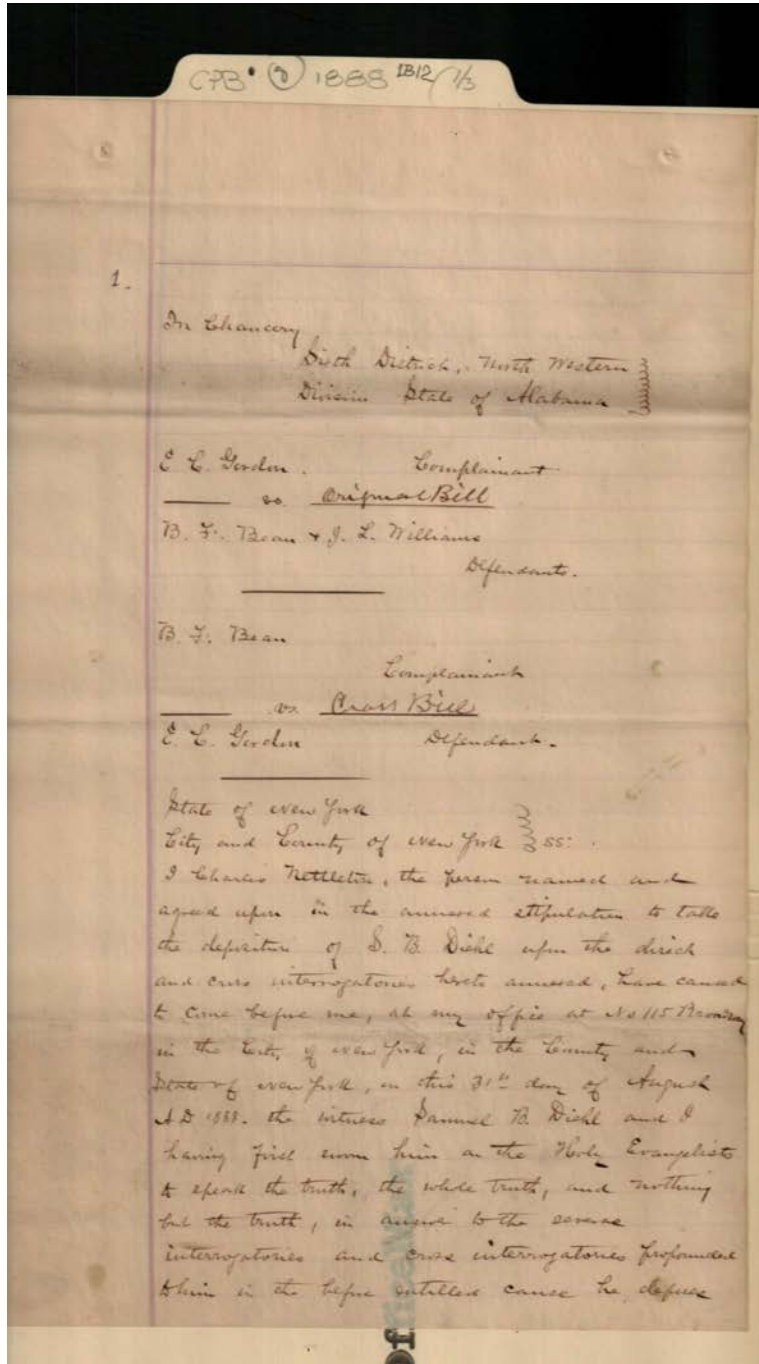 CPB 2 1888 1B12 1/3
1.
In Chancery
Sixth District, North Western
Division State of Alabama
E C. Gordon. Complainant
vs. Original Bill
B. F. Bean & J. L. Williams
Defendants.
B. F. Bean
Complainant
vs Cross Bill
E. C. Gordon Defendant.
State of New York
City and County of New York SS:
I Charles Nettleton, the person named and
agreed upon in the annexed stipulation to take
the deposition of S. B. Diehl upon the direct
and cross interrogatories hereto annexed, have caused
to come before me, at my office at No 115 Broadway
in the City of New York, in the County and
State of New York, on this 31st day of August
A D 1888. the witness Samuel B. Diehl and I
having first sworn him on the Holy Evangelists
to speak the truth, the whole truth, and nothing
but the truth, in answer to the several
interrogatories and cross interrogatories propounded
to him in the before entitled cause he deposes